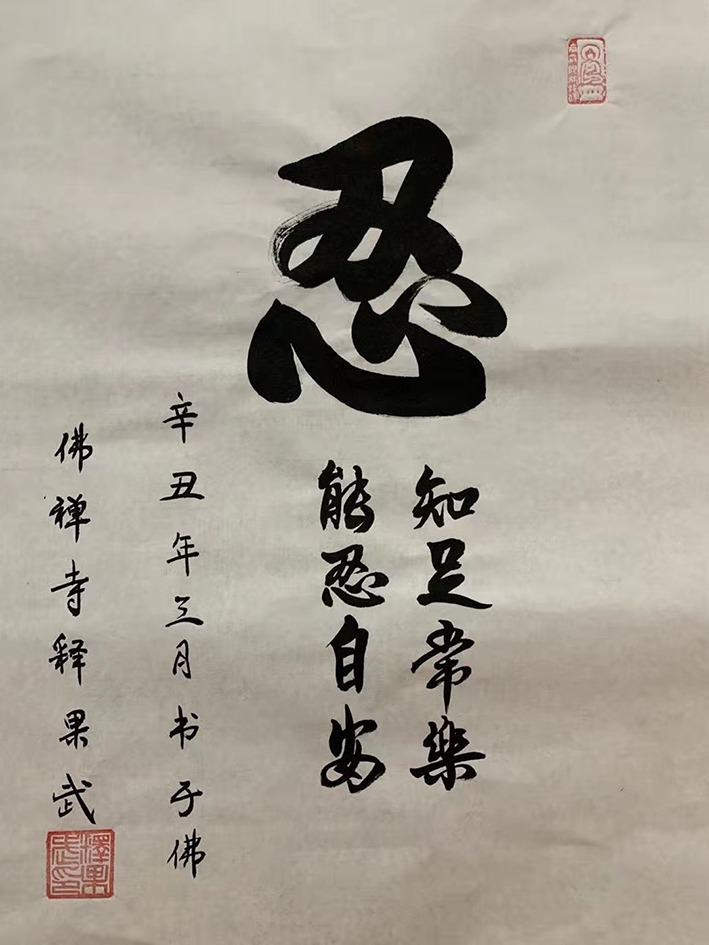 忍
知足常樂
能忍自安
辛丑年三月书于佛
佛禅寺释果武